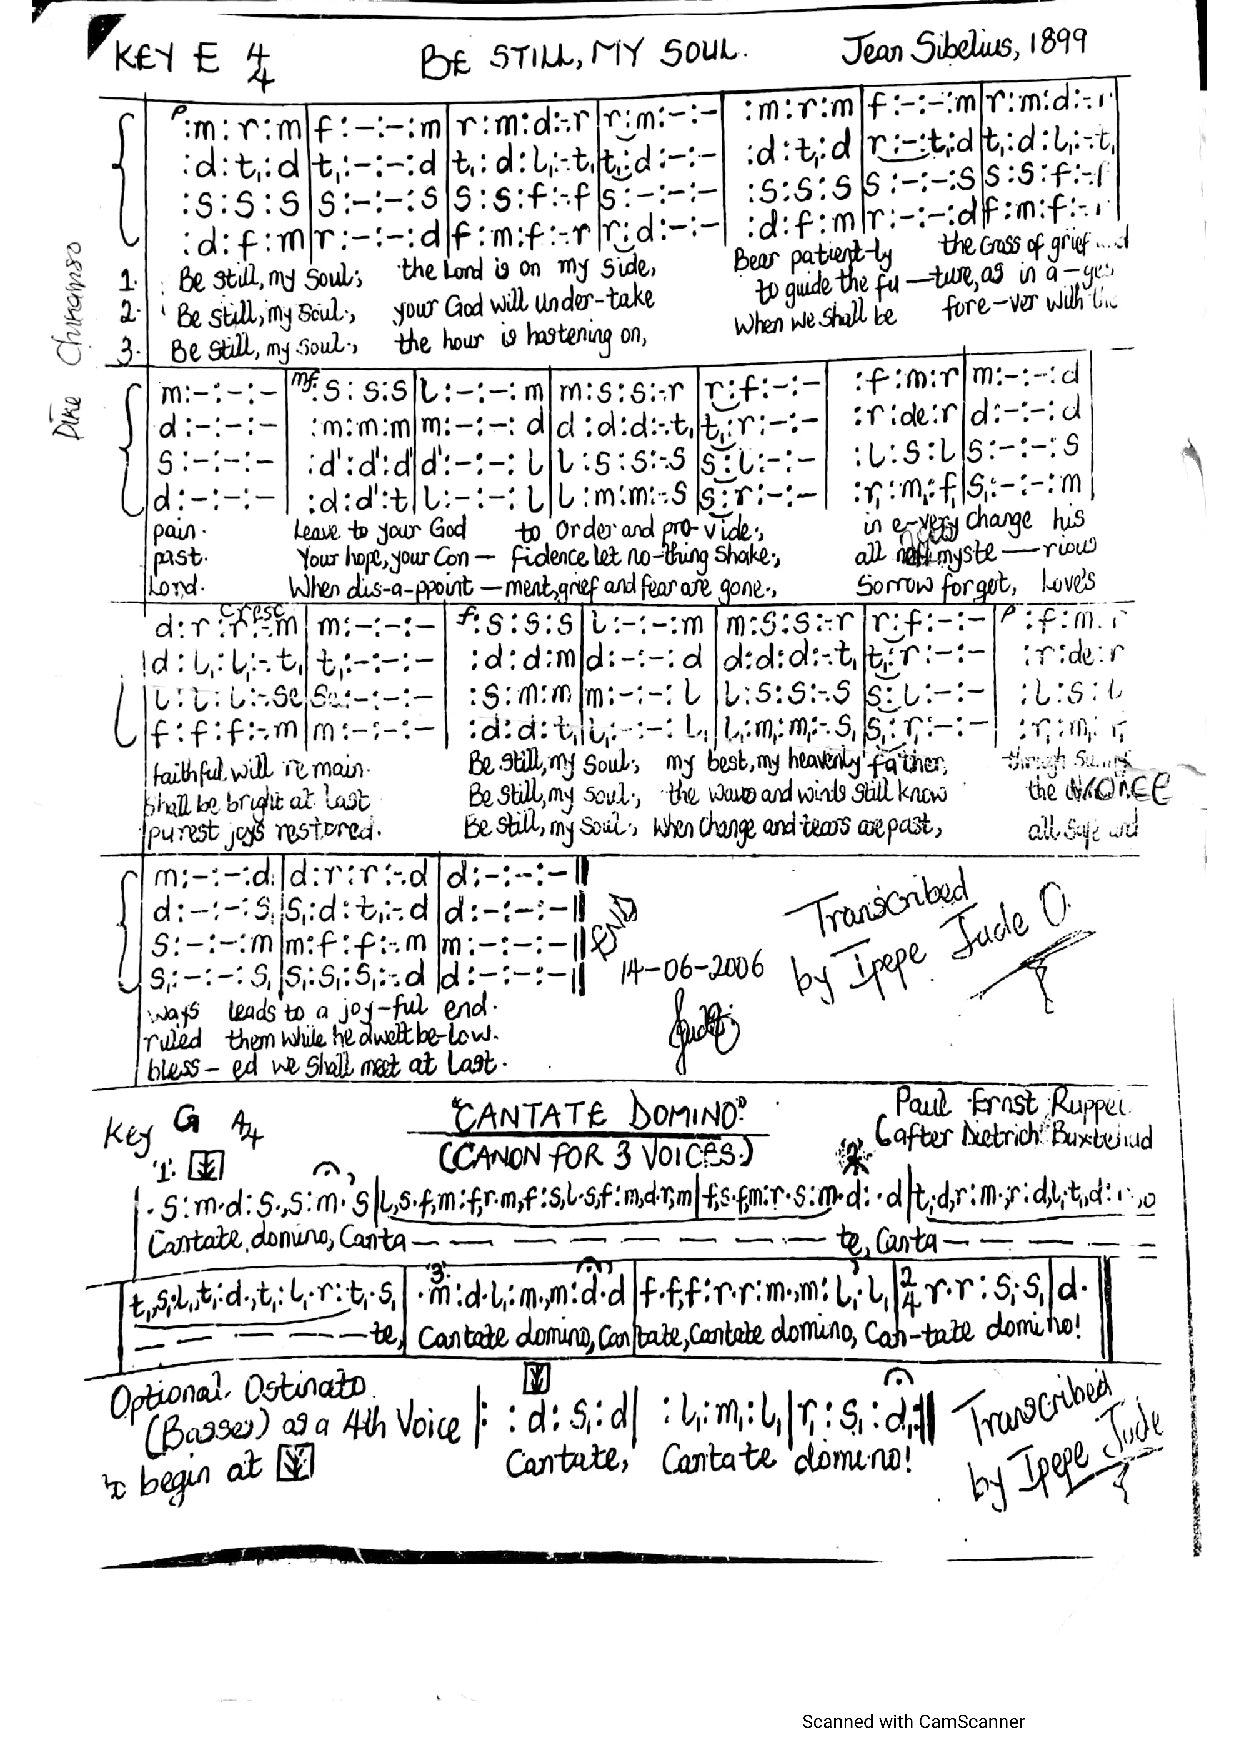 KEY E 4/4 BE STILL, MY SOUL. Jean Sibelius, 1899
p :m:r:m|f:-:-:m|r:m:d:-.r|r:m:-:-| :m:r:m|f:-:-:m|r:m:d:-.r
:d:t,:d|t,:-:-:d|t,:d:l,:-.t,|t,:d:-:-| :d:t,:d|r:-:t,:d|t,:d:l,:-.t,
:s:s:s|s:-:-:s|s:s:f:-.f|s:-:-:-| :s:s:s|s:-:-:s|s:s:f:-.f
:d:f:m|r:-:-:d|f:m:f:-.r|r:d:-:-| :d:f:m|r:-:-:d|f:m:f:-.r
1. Be still, my soul; the Lord is on my side, Bear patient-ly the cross of grief
2. Be still, my soul, your God will under-take to guide the fu-ture, as in a-ges
3. Be still, my soul, the hour is hastening on, When we shall be fore-ver with the
Dike Chukamso
m:-:-:-|mf :s:s:s|l:-:-:m|m:s:s:-.r|r:f:-:-| :f:m:r|m:-:-:d
d:-:-:-| :m:m:m|m:-:-:d|d:d:d:-.t,|t,:r:-:-| :r:de:r|d:-:-:d
s:-:-:-| :d':d':d'|d':-:-:l|l:s:s:-.s|s:l:-:-| :l:s:l|s:-:-:s
d:-:-:-| :d:d':t|l:-:-:l|l:m:m:-.s|s:r:-:-| :r,:m,:f,|s,:-:-:m
pain. Leave to your God to order and pro-vide, in e-very change his
past. Your hope, your Con-fidence let no-thing shake, all myste-rious
Lord. When dis-a-ppoint-ment, grief and fear are gone, Sorrow forgot, Love's
cresc
d:r:r:-.m|m:-:-:-|f :s:s:s|l:-:-:m|m:s:s:-.r|r:f:-:-|p :f:m:r
d:l,:l,:-.t,|t,:-:-:-| :d:d:m|d:-:-:d|d:d:d:-.t,|t,:r:-:-| :r:de:r
l:l:l:-.se|se:-:-:-| :s:m:m|m:-:-:l|l:s:s:-.s|s:l:-:-| :l:s:l
f:f:f:-.m|m:-:-:-| :d:d:t,|l,:-:-:l,|l,:m,:m,:-.s,|s,:r,:-:-| :r,:m,:r,
faithful will remain. Be still, my soul, my best, my heavenly father,
shall be bright at last Be still, my soul, the waves and winds still know the voice
purest joys restored. Be still, my soul, When change and tears are past, all safe and
m:-:-:d|d:r:r:-.d|d:-:-:-||
d:-:-:s,|s,:d:t,:-.d|d:-:-:-||
s:-:-:m|m:f:f:-.m|m:-:-:-||
s,:-:-:s,|s,:s,:s,:-.d|d:-:-:-||
END
14-06-2006
Transcribed
by Ipepe Jude O.
ways leads to a joy-ful end.
ruled them while he dwelt be-low.
bless-ed we shall meet at Last.
Key G 4/4 "CANTATE DOMINO" Paul Ernst Ruppel
(CANON FOR 3 VOICES) (after Dietrich Buxtehud
1.
.s:m.d:s.,s:m.s|l,s.f,m:f,r.m,f:s,l.s,f:m,d.r,m|f,s.f,m:r.s:m.d: .d|t,d,r:m.r:d,l,.t,,d:
Cantate domino, Canta— te, Canta—
t,,s,.l,,t,:d.,t,:l,.r:t,.s,|3. .m:d.l,:m.,m:d.d|f.f,f:r.r:m.,m:l,.l,|2/4 r.r:s,.s,|d.
te, Cantate domino, Cantate, Cantate domino, Can-tate domino!
Optional Ostinato
(Basses) as a 4th Voice |: :d:s,:d| :l,:m,:l,|r,:s,:d,:||
to begin at Cantate, Cantate domino!
Transcribed
by Ipepe Jude
Scanned with CamScanner